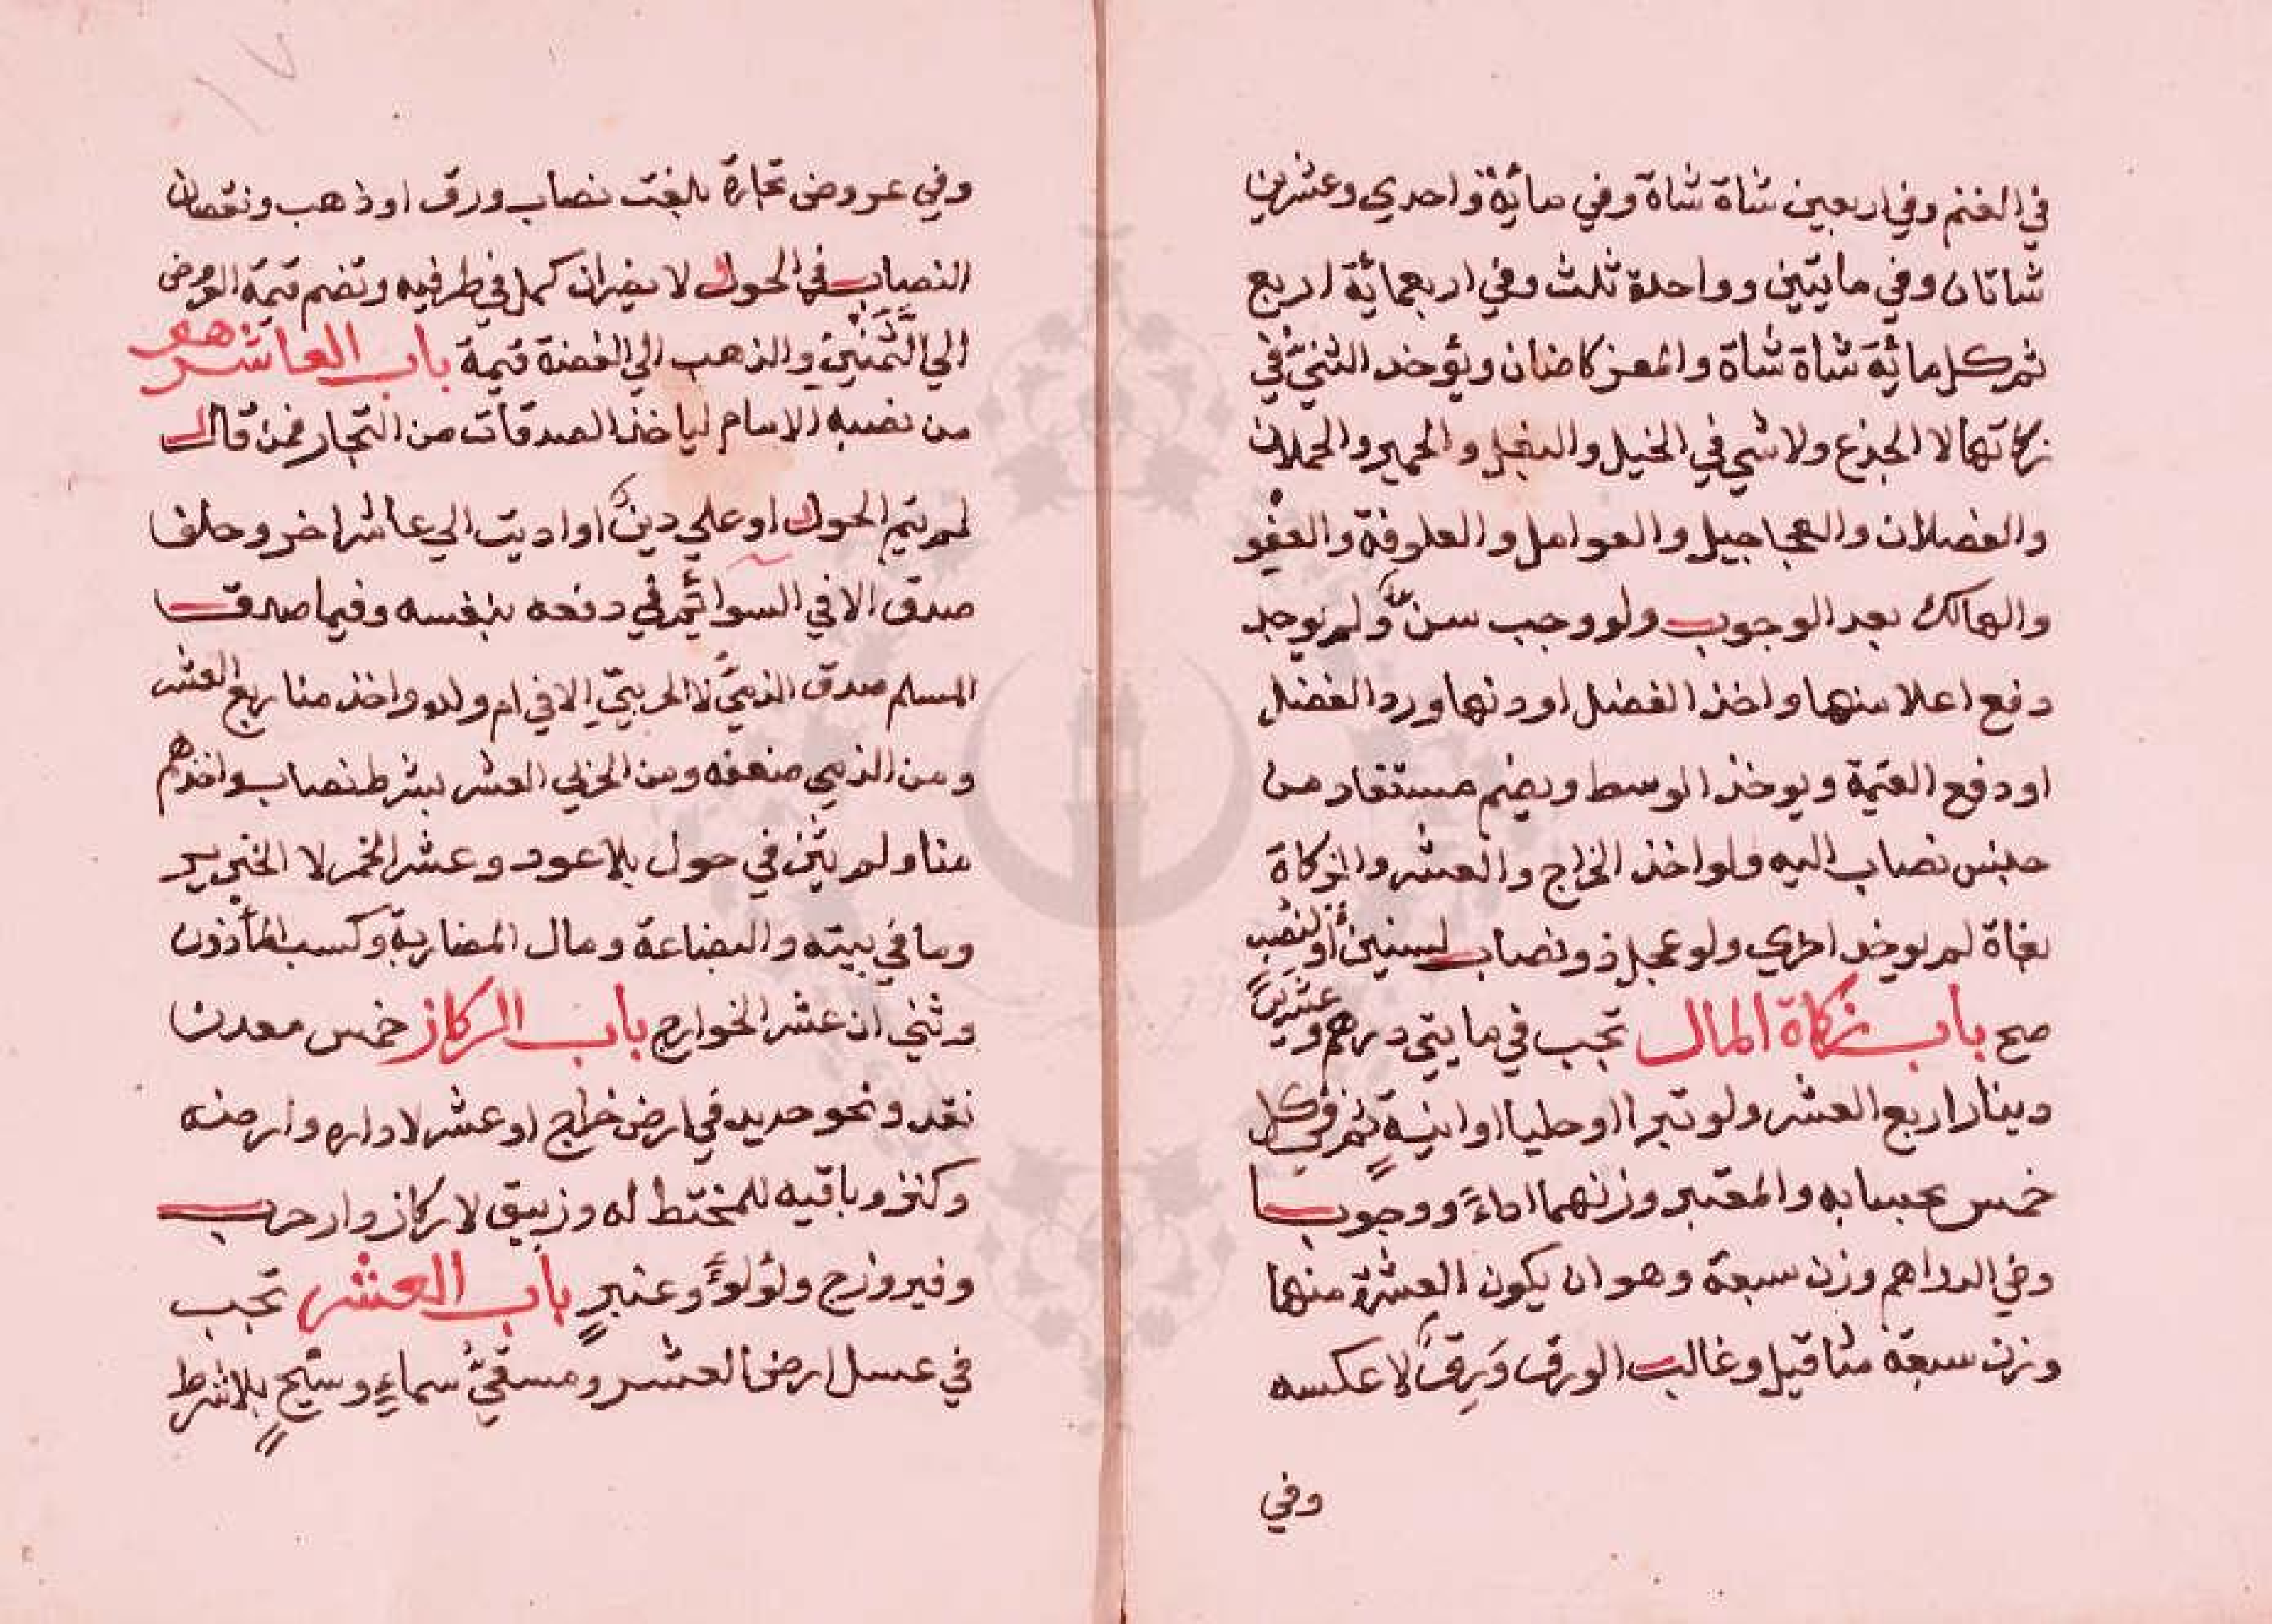 في الغنم وفي اربعين شاة شاة وفي مائة واحدي وعشرين
شاتان وفي مايتين وواحدة ثلث وفي اربعمائة اربع
ثم كل مائة شاة شاة والمعز كاضان ويؤخذ الثني في
زكاتهما لا الجذع ولا شي في الخيل والبغل والحمير والحملان
والفصلان والعجاجيل والعوامل والعلوفة والعفو
والهالك بعد الوجوب ولو وجب سن ولم يوجد
دفع اعلا منها واخذ الفضل او دنها ورد الفضل
او دفع القيمة ويوخذ الوسط ويضم مستفاد من
جنس نصاب اليه ولو اخذ الخراج والعشر والزكاة
بغاة لم يوخد اخري ولو عجل ذو نصاب لسنين أو لنصب
صح باب زكاة المال تجب في مايتي درهم وعشرين
دينارا ربع العشر ولو تبرا او حليا او انيةٍ ثم في كل
خمس بحسابه والمعتبر وزنهما اداءً ووجوبا
وفي الدراهم وزن سبعة وهو ان يكون العشرة منها
وزن سبعة مثاقيل وغالب الورق وَرِقٌ لا عكسه
وفي
١٧
وفي عروض تجارة بلغت نصاب ورق او ذهب ونقصان
النصاب في الحول لا يضر ان كمل في طرفيه وتضم قيمة العروض
الي الثَّمَنَيْنِ والذهب الي الفضة قيمة باب العاشر هو
من نصبه الامام لياخذ الصدقات من التجار فمن قال
لم يتم الحول او علي دينٌ او اديت الي عاشر اخر وحلف
صدق الا في السوائم في دفعه بنفسه وفيما صدق
المسلم صدق الذميّ لا الحربيّ الا في ام ولده واخذ منا ربع العشر
ومن الذمي ضعفه ومن الحربي العشر بشرط نصاب واخذهم
منا ولم يثن في حول بلا عود وعشر الخمر لا الخنزير
وما في بيته والبضاعة ومال المضاربة وكسب المأذون
وثني ان عشر الخوارج باب الركاز خمس معدن
نقد ونحو حديد في ارض خراج او عشر لا داره وارضه
وكنز وباقيه للمختط له وزيبق لا ركاز دار حرب
وفيروزج ولؤلؤ وعنبرٍ باب العشر تجب
في عسل ارض العشر ومسقيّ سماءٍ وسيحٍ بلا شرط